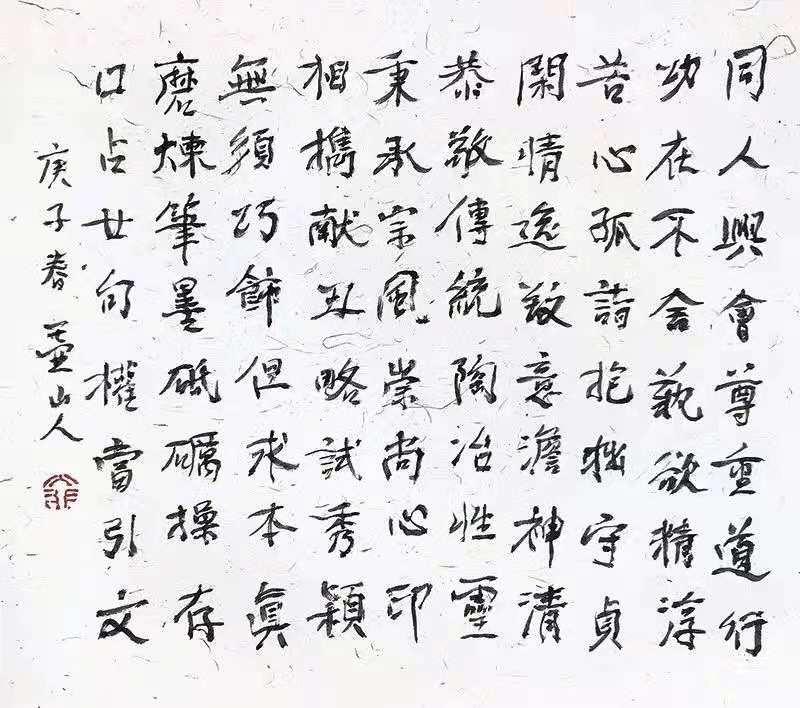 同人興會尊重道行
功在不舍藝欲精淳
苦心孤詣抱拙守貞
閑情逸致意澹神清
恭敬傳統陶冶性靈
秉承宗風崇尚心印
相携献丑略試秀穎
無須巧飾但求本真
磨煉筆墨砥礪操存
口占廿句權當引文
庚子春 壺山人